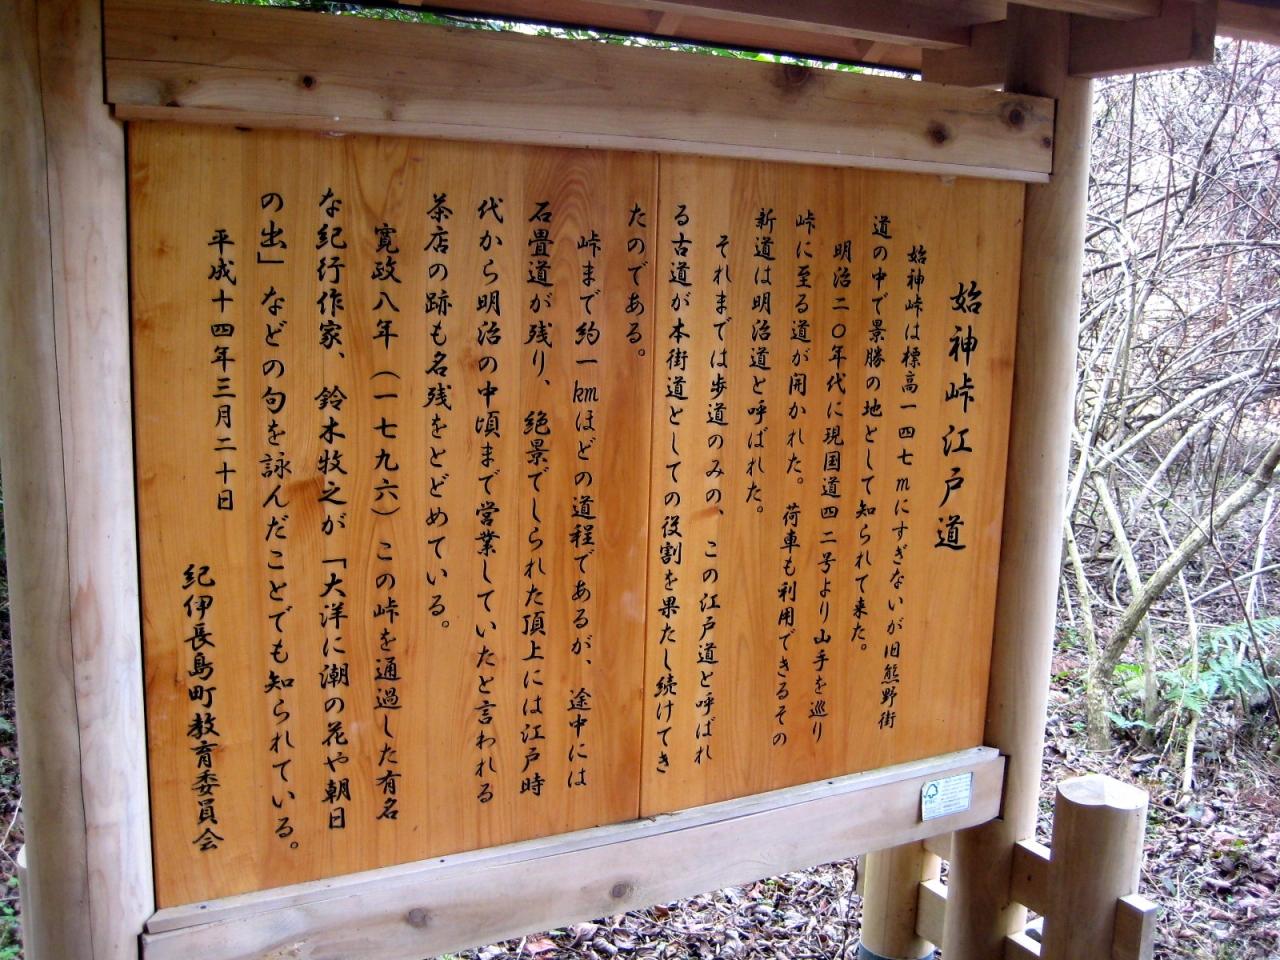 始神峠江戸道
始神峠は標高一四七mにすぎないが旧熊野街
道の中で景勝の地として知られて来た。
明治二〇年代に現国道四二号より山手を巡り
峠に至る道が開かれた。荷車も利用できるその
新道は明治道と呼ばれた。
それまでは歩道のみの、この江戸道と呼ばれ
る古道が本街道としての役割を果たし続けてき
たのである。
峠まで約一kmほどの道程であるが、途中には
石畳道が残り、絶景でしられた頂上には江戸時
代から明治の中頃まで営業していたと言われる
茶店の跡も名残をとどめている。
寛政八年(一七九六)この峠を通過した有名
な紀行作家、鈴木牧之が「大洋に潮の花や朝日
の出」などの句を詠んだことでも知られている。
平成十四年三月二十日
紀伊長島町教育委員会